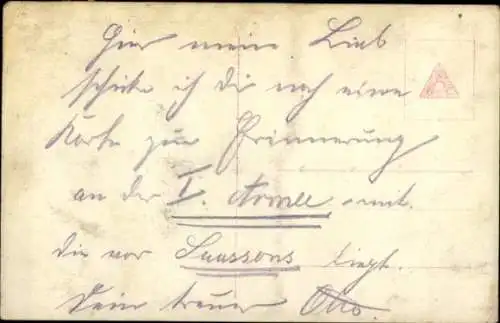 Hier mein Lieb
schicke ich Dir noch eine
Karte zur Erinnerung
an der I. Armee mit.
die vor Suassons liegt.
Dein treuer Otto.